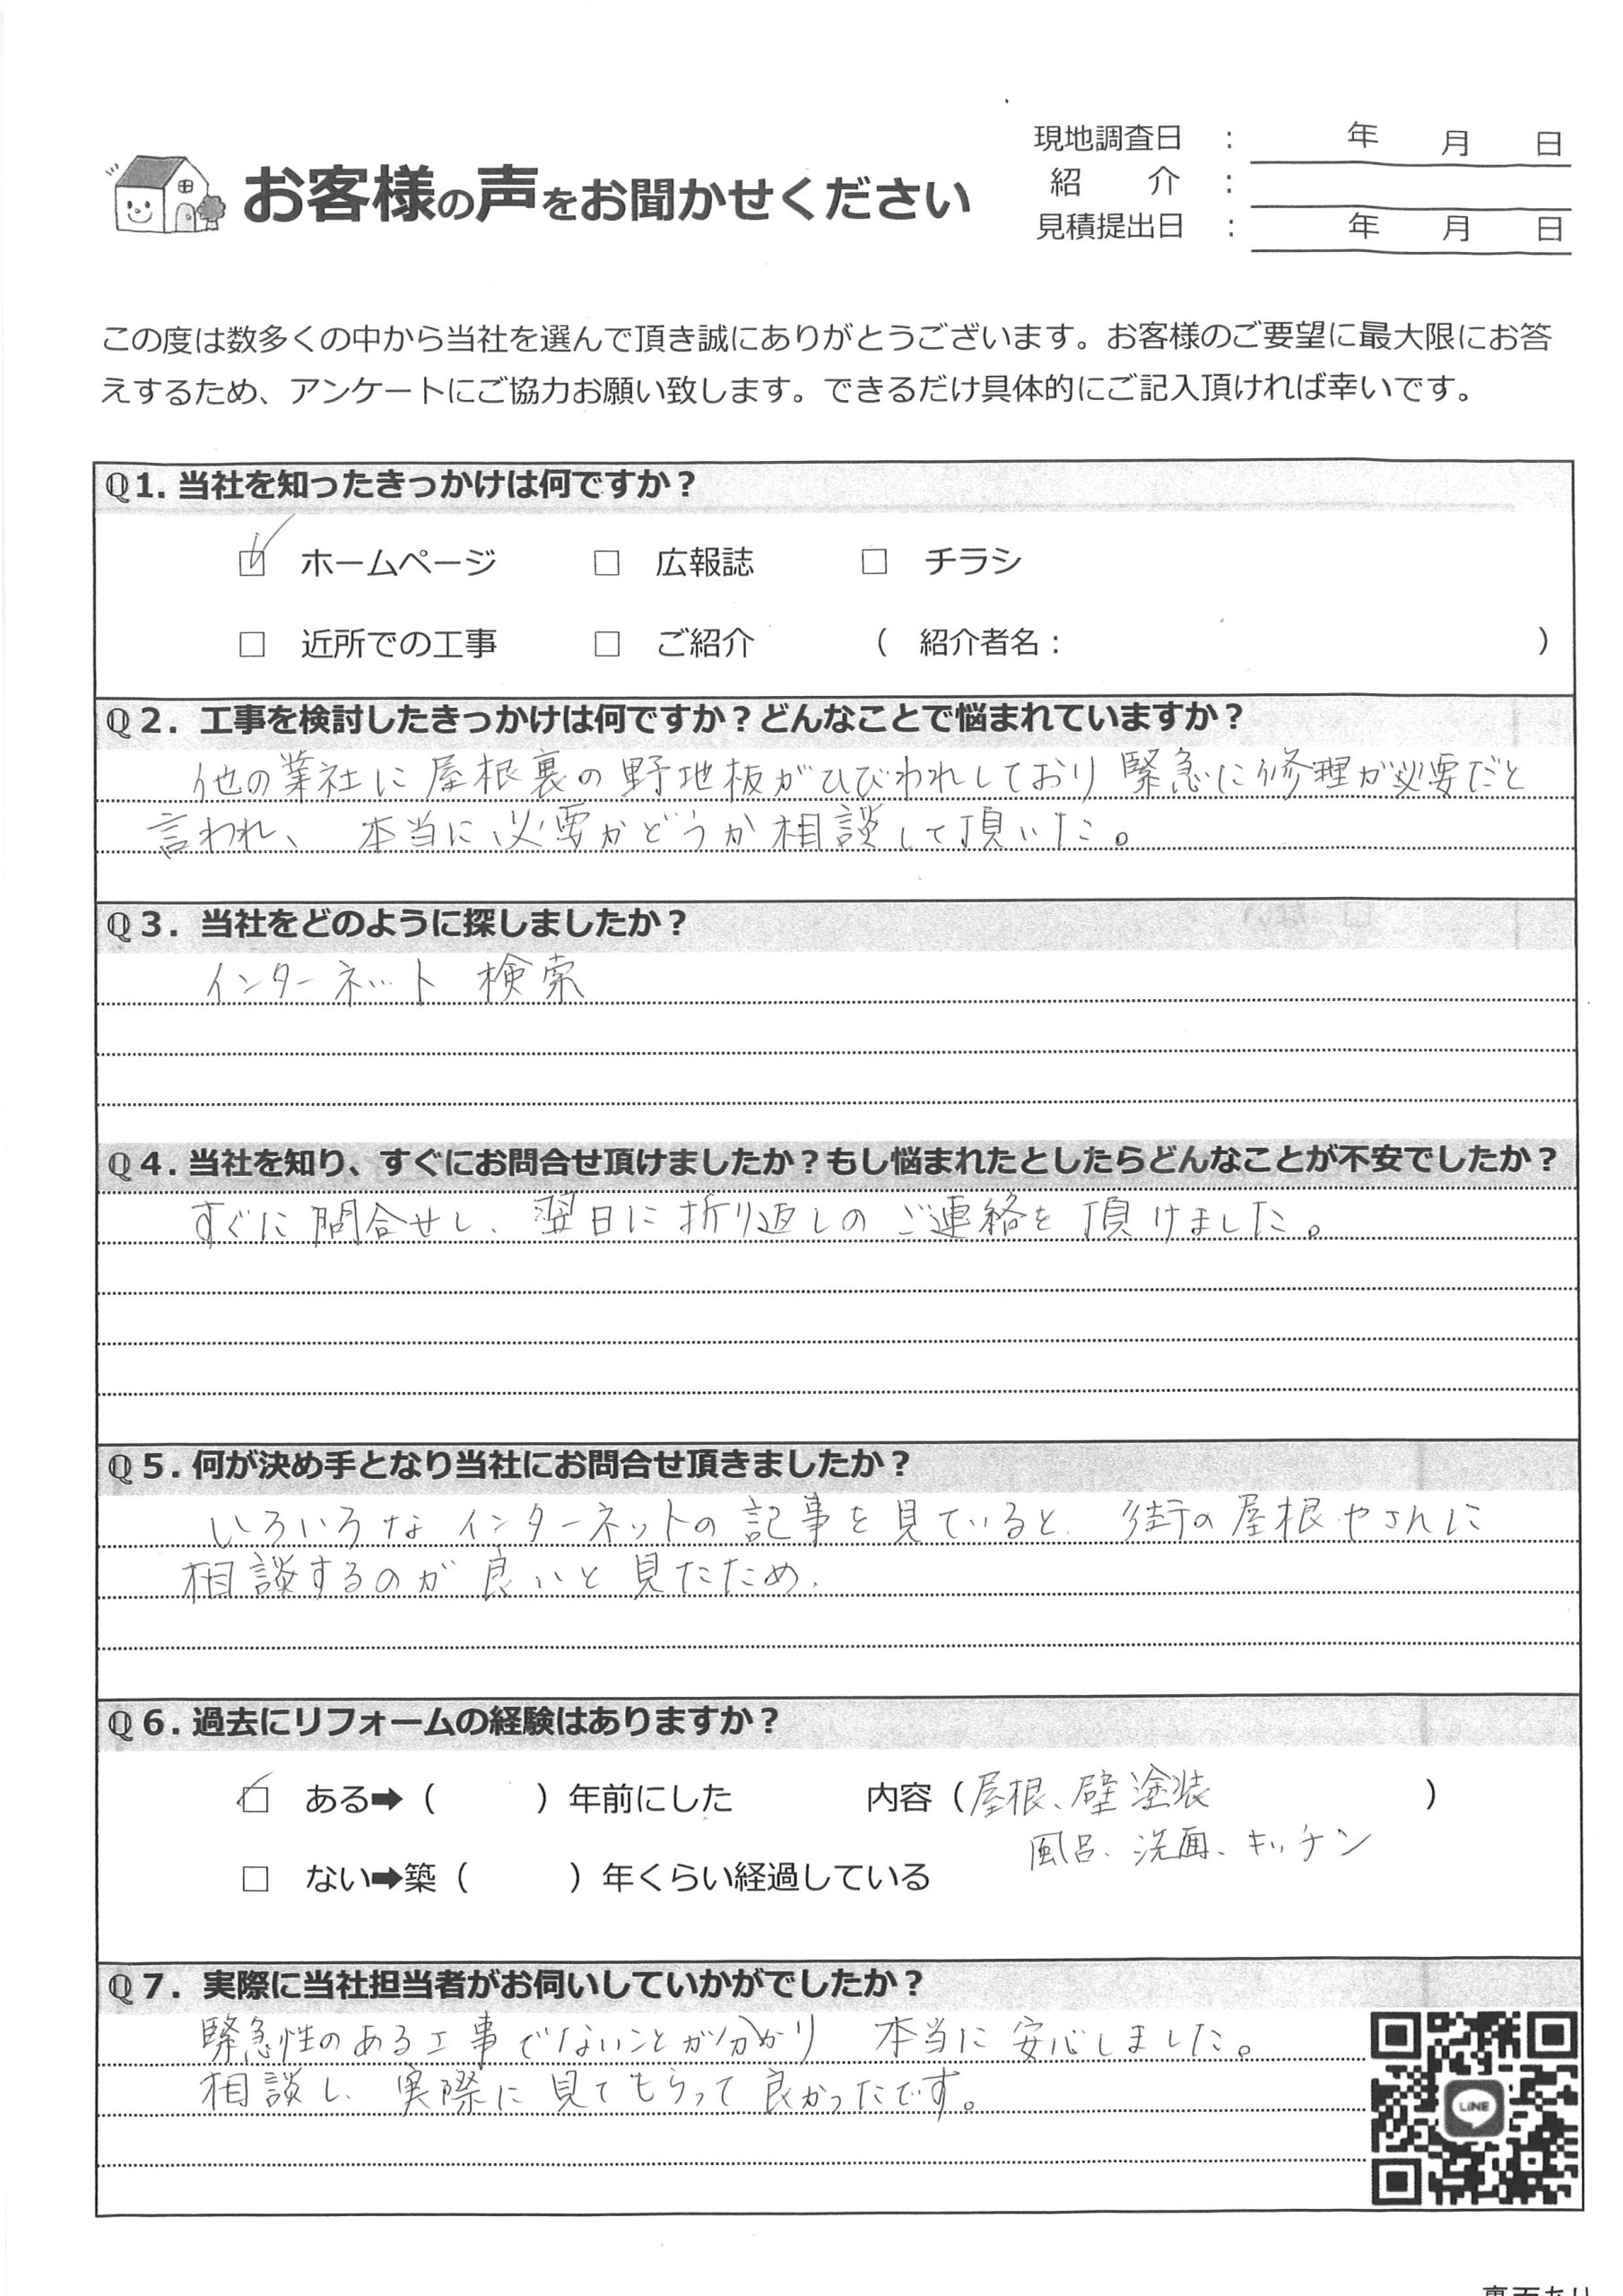 お客様の声をお聞かせください
現地調査日 : 年 月 日
紹 介 :
見積提出日 : 年 月 日
この度は数多くの中から当社を選んで頂き誠にありがとうございます。お客様のご要望に最大限にお答
えするため、アンケートにご協力お願い致します。できるだけ具体的にご記入頂ければ幸いです。
Q1. 当社を知ったきっかけは何ですか？
☑ ホームページ □ 広報誌 □ チラシ
□ 近所での工事 □ ご紹介 ( 紹介者名： )
Q2. 工事を検討したきっかけは何ですか？どんなことで悩まれていますか？
他の業社に屋根裏の野地板がひびわれしており緊急に修理が必要だと
言われ、本当に必要かどうか相談して頂いた。
Q3. 当社をどのように探しましたか？
インターネット 検索
Q4. 当社を知り、すぐにお問合せ頂けましたか？もし悩まれたとしたらどんなことが不安でしたか？
すぐに問合せし、翌日に折り返しのご連絡を頂けました。
Q5. 何が決め手となり当社にお問合せ頂きましたか？
いろいろなインターネットの記事を見ていると、街の屋根やさんに
相談するのが良いと見たため、
Q6. 過去にリフォームの経験はありますか？
☑ ある➡（ ）年前にした 内容（屋根、壁塗装 ）
風呂、洗面、キッチン
□ ない➡築（ ）年くらい経過している
Q7. 実際に当社担当者がお伺いしていかがでしたか？
緊急性のある工事でないことが分かり 本当に安心しました。
相談し、実際に見てもらって良かったです。
LINE